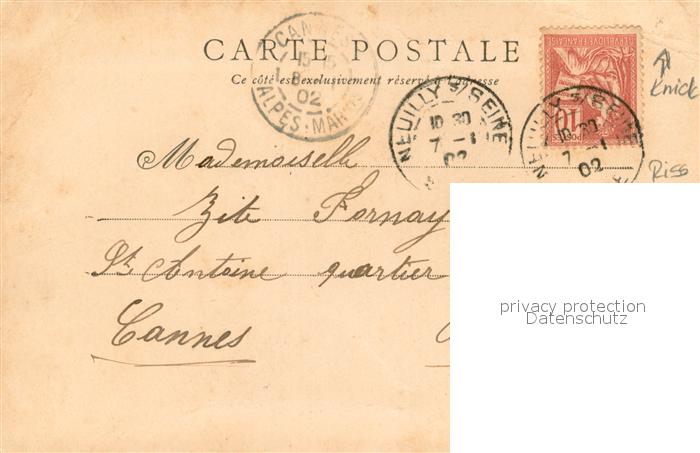 CARTE POSTALE
Ce côté est exclusivement réservé à l'adresse
CANNES
15
8
02
ALPES-MAR
NEUILLY S/SEINE
10 30
7 -1
02
NEUILLY S/SEINE
10 30
7 -1
02
REPUBLIQUE FRANÇAISE
10
POSTES
Knick
Riss
Mademoiselle
Zite Fornay
St Antoine quartier
Cannes
privacy protection
Datenschutz